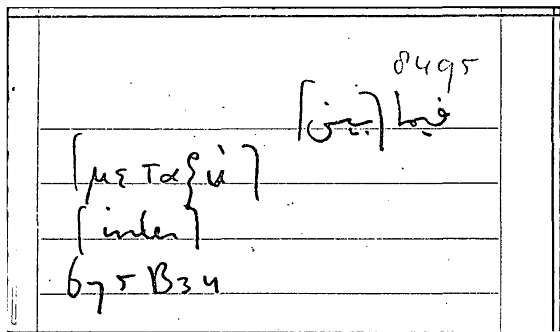 8495
فيما [بين]
[μεταξὺ]
[inter]
675 B34